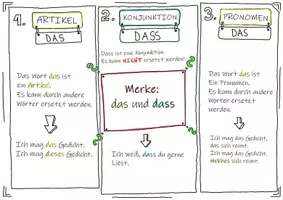 1. ARTIKEL
DAS
Das Wort das ist
ein Artikel.
Es kann durch andere
Wörter ersetzt werden.
Ich mag das Gedicht.
Ich mag dieses Gedicht.
2. KONJUNKTION
DASS
Dass ist eine Konjunktion.
Es kann NICHT ersetzt werden!
Merke:
das und dass
Ich weiß, dass du gerne
liest.
3. PRONOMEN
DAS
Das Wort das ist
Ein Pronomen.
Es kann durch andere
Wörter ersetzt werden.
Ich mag das Gedicht,
das sich reimt.
Ich mag das Gedicht,
welches sich reimt.